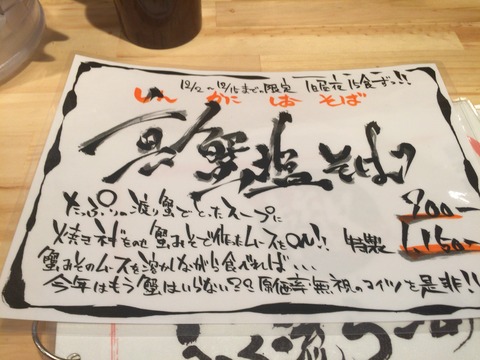 12/2〜12/15までの限定 1日昼夜15食ずつ!!
しん かに しお そば
蟹塩そばっ
たっぷりの渡り蟹でとったスープに
焼き村をのせ 蟹みそで作ったムースをON!!
900-
特製 1,160-
蟹みそのムースを溶かしながら食べれば...
今年はもう蟹はいらない?? 原価率無視のコイツを是非!!